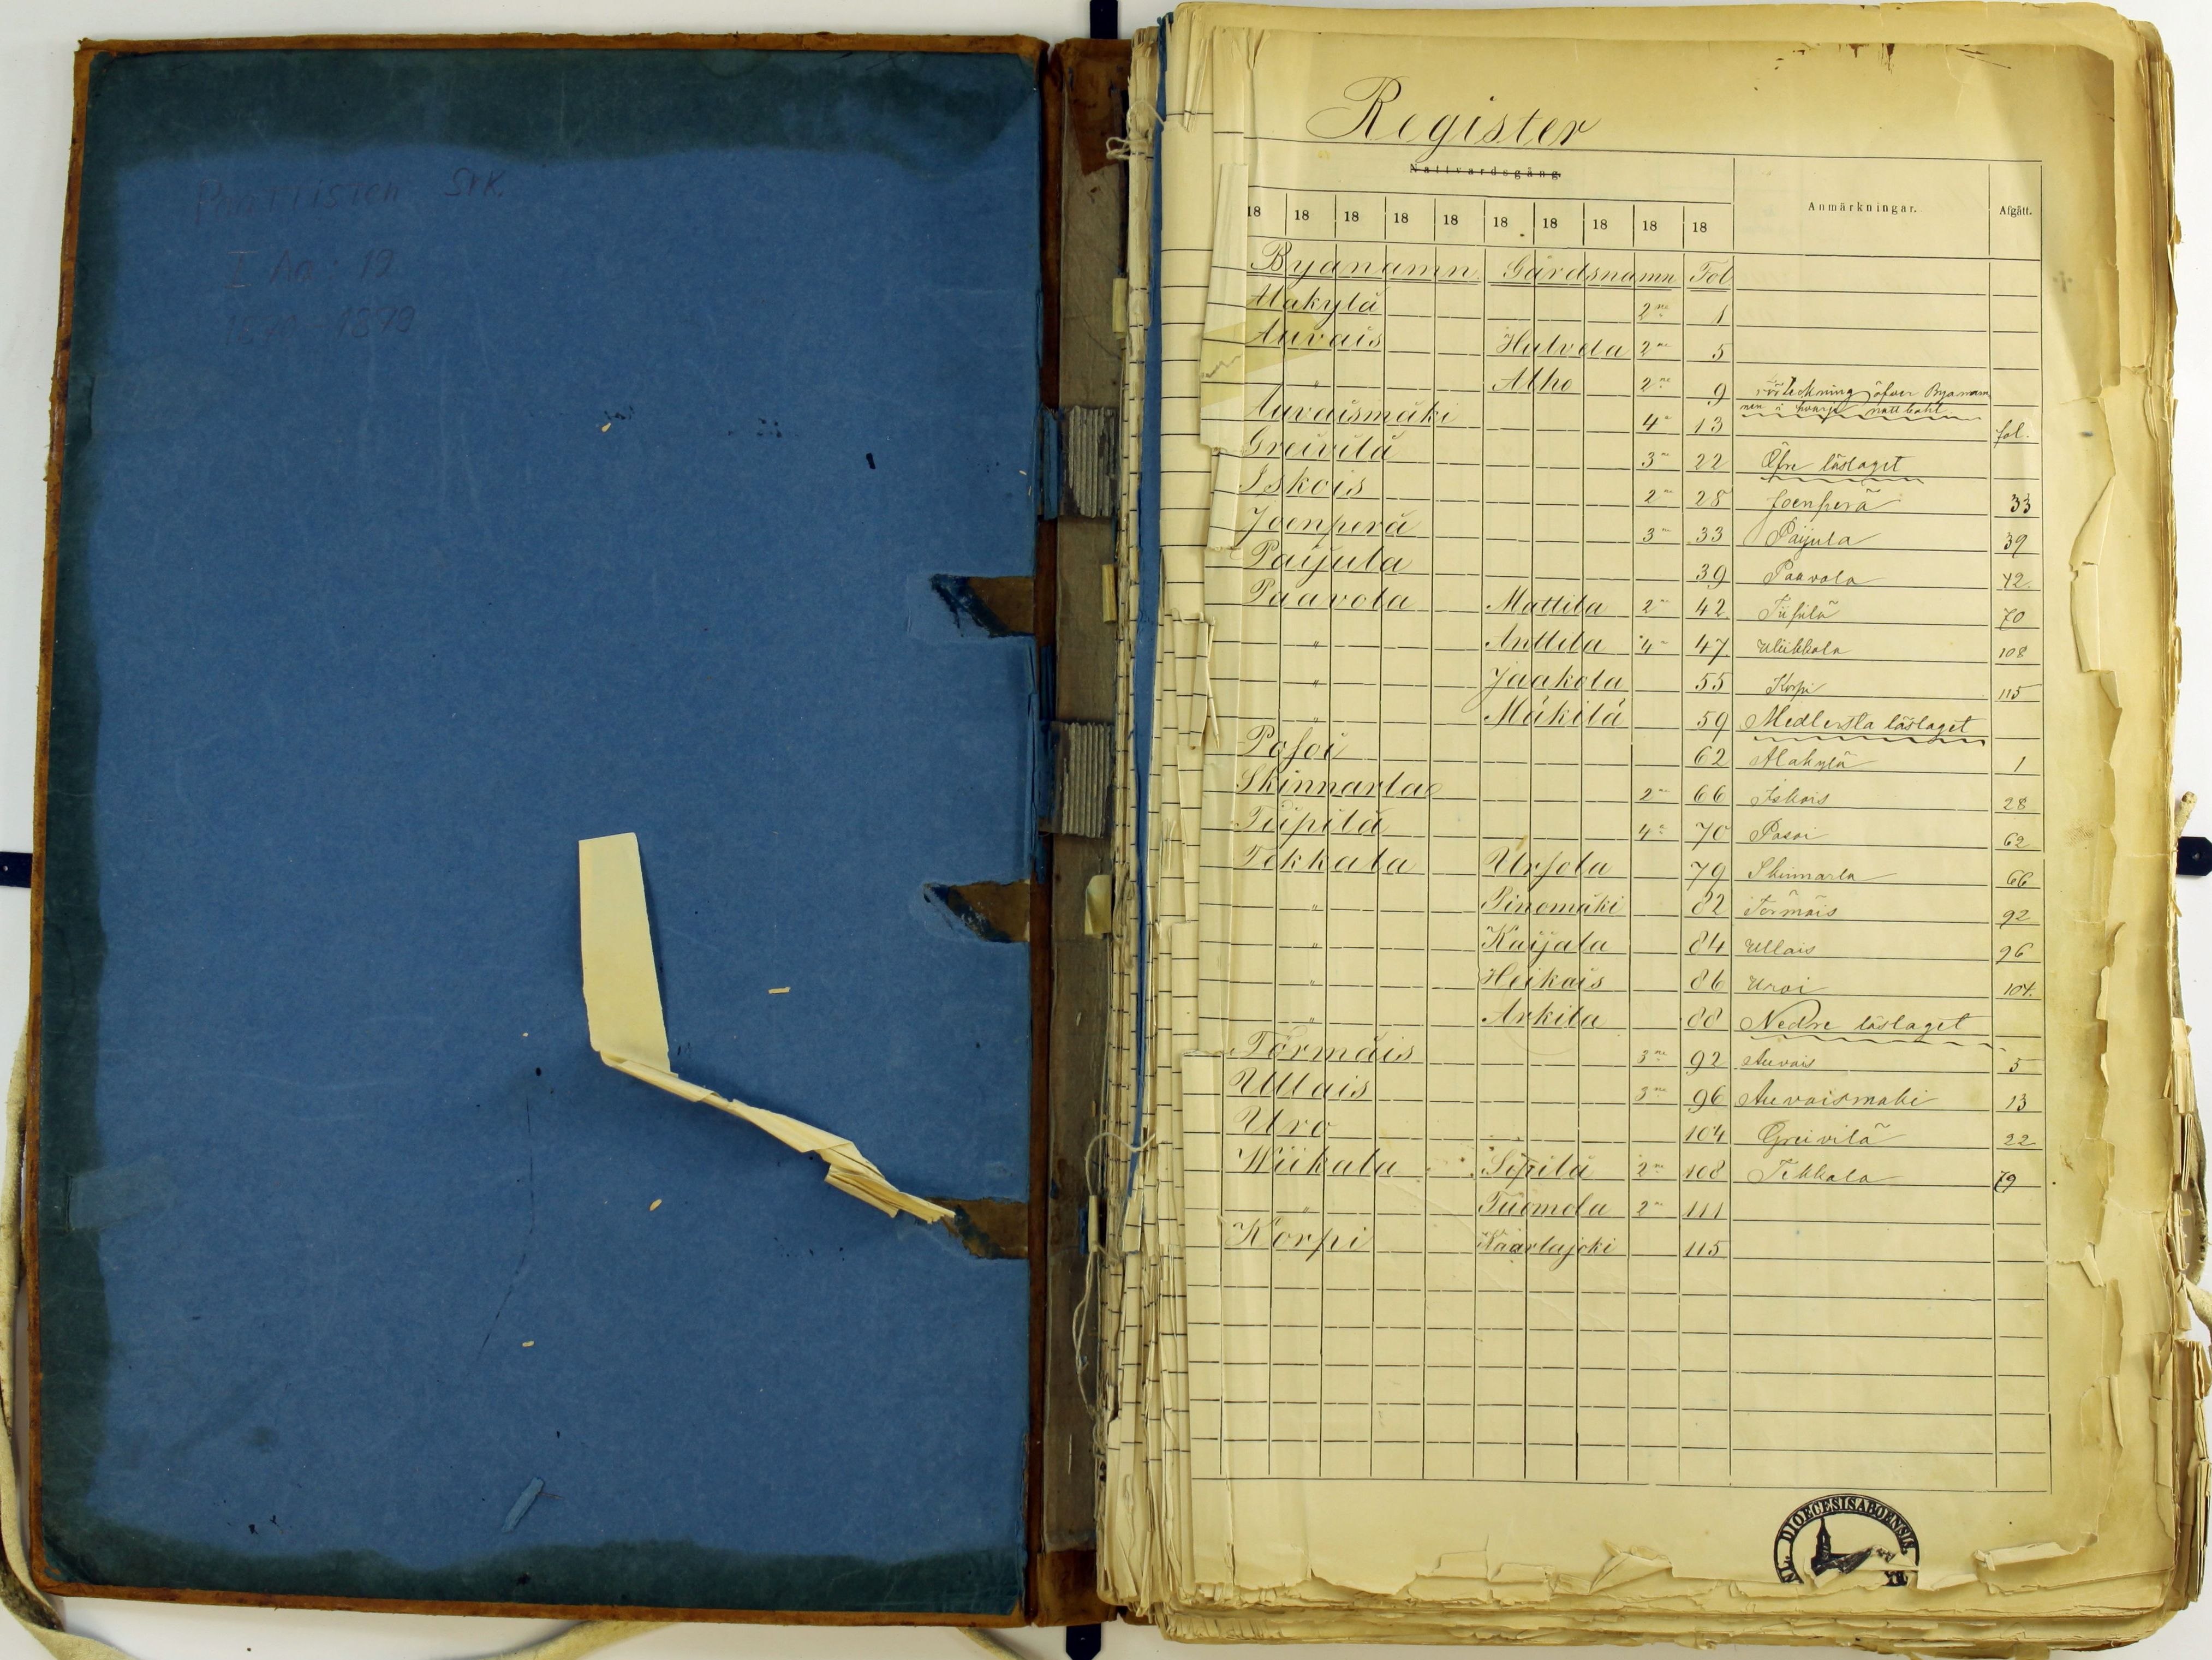 Srk.
I Aa: 19
1870-1879
Register
Nattvardsgång.
18 18 18 18 18 18 18 18 18 18 Anmärkningar. Afgått.
Byanamn Gårdsnamn Fol
Alakylä 2ne 1
Auvais Hulvela 2ne 5
" Alho 2ne 9 öfver Byanam
Auvaismäki 4a 13 nen i fol.
Greivilä 3ne 22 Öfre läslaget
Iskois 2ne 28 Joenperä 33
Joenperä 3ne 33 Paijula 39
Paijula 39 Paavola 42.
Paavola Mattila 2ne 42 Tiipilä 70
" Anttila 4a 47 Wiikkala 108
" Jaakola 55 Korpi 115
" Mäkilä 59 Medlersta läslaget
Posoi 62 Alakylä 1
Skinnarla 2ne 66 Iskois 28
Tiipilä 4a 70 Posoi 62
Tekkala Ursola 79 Skinnarla 66
" Pinomäki 82 Törmäis 92
" Kaijala 84 Ullais 96
" Heikais 86 Uroi 104.
" Arkila 88 Nedre läslaget
Törmäis 3ne 92 Auvais 5
Ullais 3ne 96 Auvaismäki 13
Uro 104 Greivilä 22
Wiikala Sipilä 2ne 108 Tekkala 79
" Tuomola 2ne 111
Korpi Kaarlajoki 115
DIOECESIS ABOENSIS